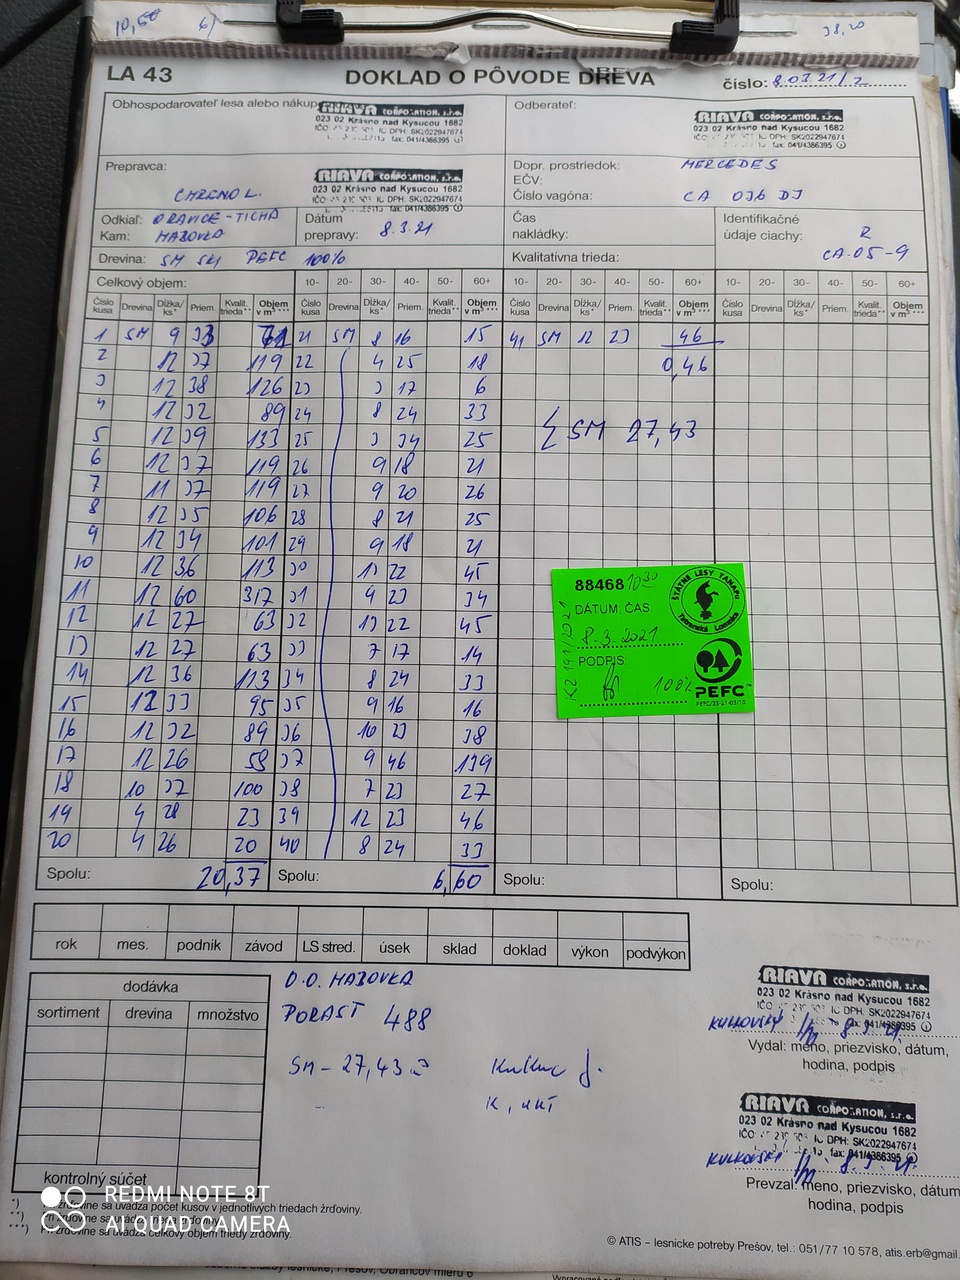 10,50 6/ 38,20
LA 43 DOKLAD O PÔVODE DREVA číslo: 8.0321/2
Obhospodarovateľ lesa alebo nákup
RIAVA CORPORATION, s.r.o.
023 02 Krásno nad Kysucou 1682
IČO DPH: SK2022947674
fax: 041/4386395
Odberateľ:
RIAVA CORPORATION, s.r.o.
023 02 Krásno nad Kysucou 1682
DPH: SK2022947674
fax: 041/4386395
Prepravca:
CHRENO L.
RIAVA CORPORATION, s.r.o.
023 02 Krásno nad Kysucou 1682
DPH: SK2022947674
fax: 041/4386395
Dopr. prostriedok: MERCEDES
EČV:
Číslo vagóna: CA 036 DJ
Odkiaľ: ORAVICE - TICHÁ
Kam: HABOVKA
Dátum prepravy: 8.3.21
Čas nakládky:
Identifikačné údaje ciachy: R
CA-05-9
Drevina: SM PEFC 100%
Kvalitatívna trieda:
Celkový objem: 10- 20- 30- 40- 50- 60+ 10- 20- 30- 40- 50- 60+ 10- 20- 30- 40- 50- 60+
Číslo kusa Drevina Dĺžka/ks* Priem. Kvalit. trieda** Objem v m³ *** Číslo kusa Drevina Dĺžka/ks* Priem. Kvalit. trieda** Objem v m³ *** Číslo kusa Drevina Dĺžka/ks* Priem. Kvalit. trieda** Objem v m³ *** Číslo kusa Drevina Dĺžka/ks* Priem. Kvalit. trieda** Objem v m³ ***
1 SM 9 33 71 21 SM 8 16 15 41 SM 12 23 46
2 12 37 119 22 4 25 18 0,46
3 12 38 126 23 3 17 6
4 12 32 89 24 8 24 33
5 12 39 133 25 3 34 25 Σ SM 27,43
6 12 37 119 26 9 18 21
7 11 37 119 27 9 20 26
8 12 35 106 28 8 21 25
9 12 34 101 29 9 18 21
10 12 36 113 30 13 22 45
11 12 60 317 31 9 23 34
12 12 27 63 32 13 22 45
13 12 27 63 33 7 17 14
14 12 36 113 34 8 24 33
15 12 33 95 35 9 16 16
16 12 32 89 36 10 23 38
17 12 26 58 37 9 46 139
18 10 37 100 38 7 23 27
19 4 28 23 39 12 23 46
20 4 26 20 40 8 24 33
Spolu: 20,37 Spolu: 6,60 Spolu: Spolu:
88468 10 30
DÁTUM: ČAS
8.3.2021
PODPIS
100%
KZ 191/2021
ŠTÁTNE LESY TANAPu
Tatranská Lomnica
PEFC
PEFC/23-21-03/10
rok mes. podnik závod LS stred. úsek sklad doklad výkon podvýkon
dodávka
sortiment drevina množstvo
kontrolný súčet
O.O. HABOVKA
PORAST 488
SM - 27,43
RIAVA CORPORATION, s.r.o.
023 02 Krásno nad Kysucou 1682
DPH: SK2022947674
fax: 041/4386395
Vydal: meno, priezvisko, dátum,
hodina, podpis
RIAVA CORPORATION, s.r.o.
023 02 Krásno nad Kysucou 1682
DPH: SK2022947674
fax: 041/4386395
Prevzal: meno, priezvisko, dátum
hodina, podpis
zrdovine sa uvádza počet kusov v jednotlivých triedach žrďoviny.
žrďovine sa uvádza celkový objem triedy žrďoviny.
© ATIS – lesnícke potreby Prešov, tel.: 051/77 10 578, atis.erb@gmail
REDMI NOTE 8T
AI QUAD CAMERA